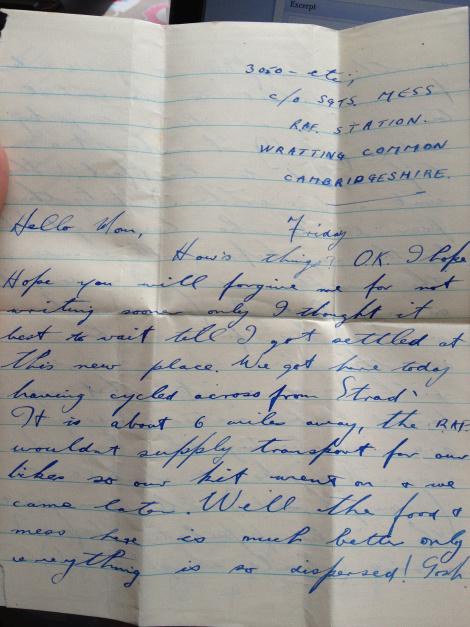 Excerpt
3050 - etc;
c/o SGTS. MESS
RAF. STATION.
WRATTING COMMON
CAMBRIDGESHIRE.
Friday
Hello Mom,
How's things? O.K. I hope
Hope you will forgive me for not
writing sooner only I thought it
best to wait till I got settled at
this new place. We got here today
having cycled across from Strad'
It is about 6 miles away, the RAF
wouldnt supply transport for our
bikes so our kit went on & we
came later. Well the food &
mess here is much better only
everything is so dispersed! Gosh